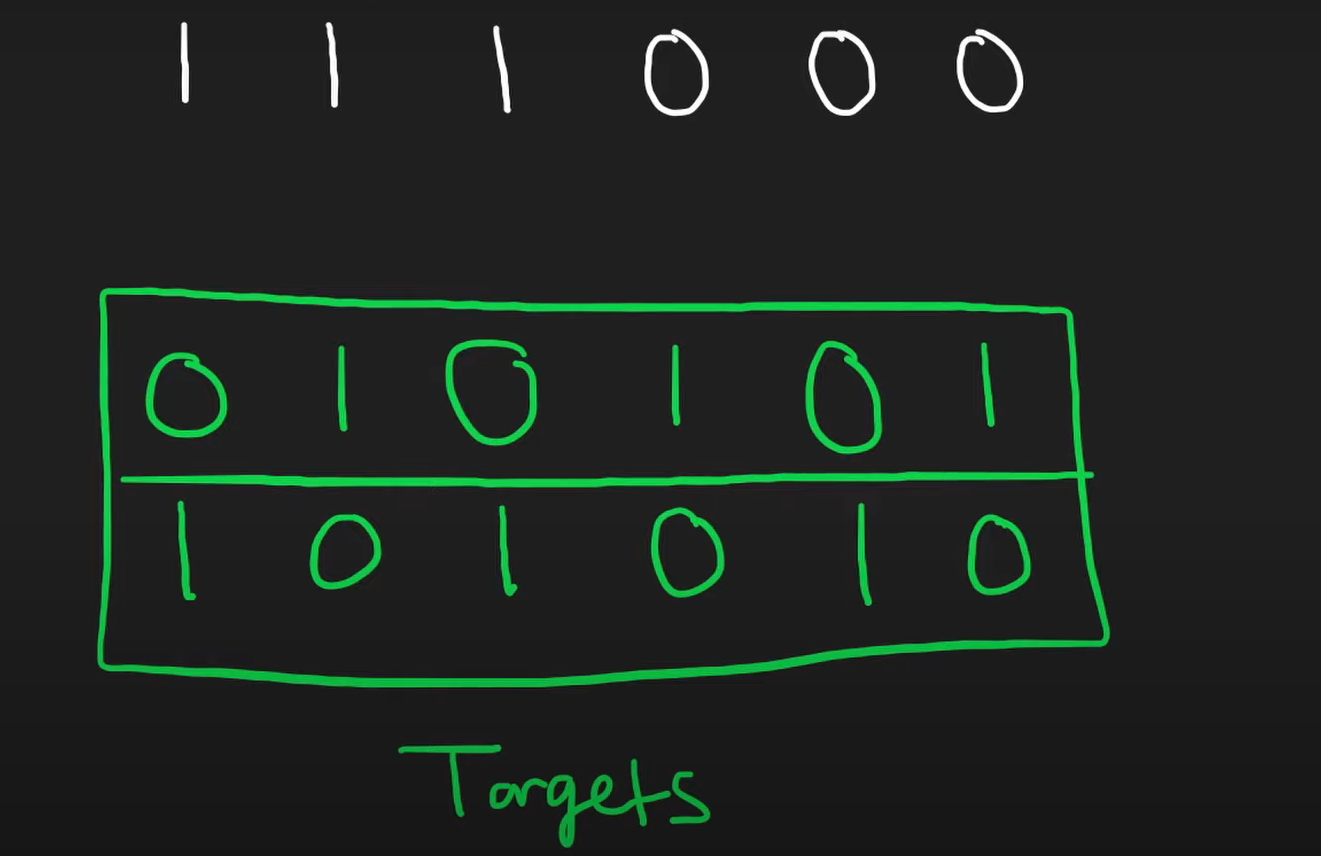 1 1 1 0 0 0
0 1 0 1 0 1
1 0 1 0 1 0
Targets